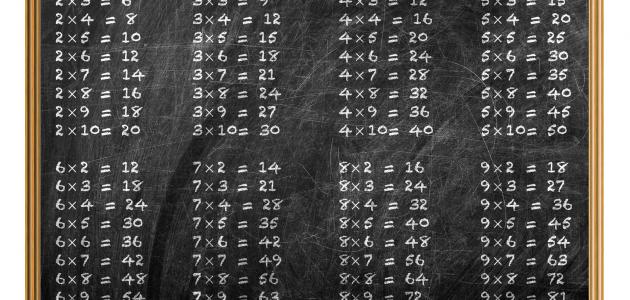 2×3 = 6 3×3 = 9 4×3 = 12 5×3 = 15
2×4 = 8 3×4 = 12 4×4 = 16 5×4 = 20
2×5 = 10 3×5 = 15 4×5 = 20 5×5 = 25
2×6 = 12 3×6 = 18 4×6 = 24 5×6 = 30
2×7 = 14 3×7 = 21 4×7 = 28 5×7 = 35
2×8 = 16 3×8 = 24 4×8 = 32 5×8 = 40
2×9 = 18 3×9 = 27 4×9 = 36 5×9 = 45
2×10= 20 3×10= 30 4×10= 40 5×10= 50
6×2 = 12 7×2 = 14 8×2 = 16 9×2 = 18
6×3 = 18 7×3 = 21 8×3 = 24 9×3 = 27
6×4 = 24 7×4 = 28 8×4 = 32 9×4 = 36
6×5 = 30 7×5 = 35 8×5 = 40 9×5 = 45
6×6 = 36 7×6 = 42 8×6 = 48 9×6 = 54
6×7 = 42 7×7 = 49 8×7 = 56 9×7 = 63
6×8 = 48 7×8 = 56 8×8 = 64 9×8 = 72
6×9 = 54 7×9 = 63 8×9 = 72 9×9 = 81